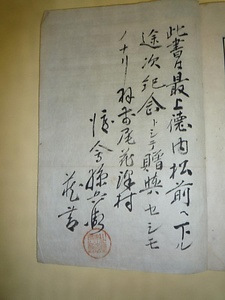 此書ハ最上徳内松前ヘ下ル
途次紀念トシテ贈與セシモ
ノナリ 羽前尾花澤村
蔵書